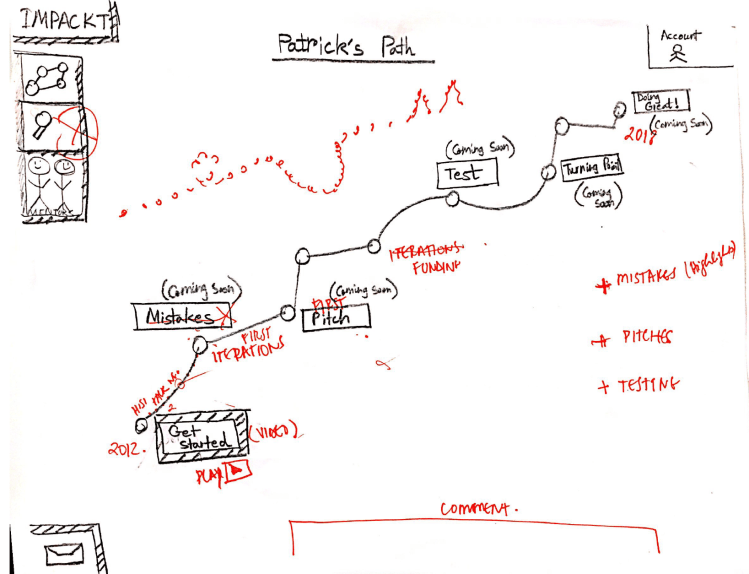 IMPACKT
Patrick's Path
Account
Doing
Great!
(Coming Soon)
2018
(Coming Soon)
Test
Turning Point
(Coming
Soon)
ITERATIONS
FUNDING
(Coming Soon)
Mistakes
(Coming Soon)
FIRST
Pitch
FIRST
ITERATIONS
+ MISTAKES (Highlight)
+ PITCHES
+ TESTING
MENTOR
2
2012.
Get
started
(VIDEO)
PLAY
COMMENT.